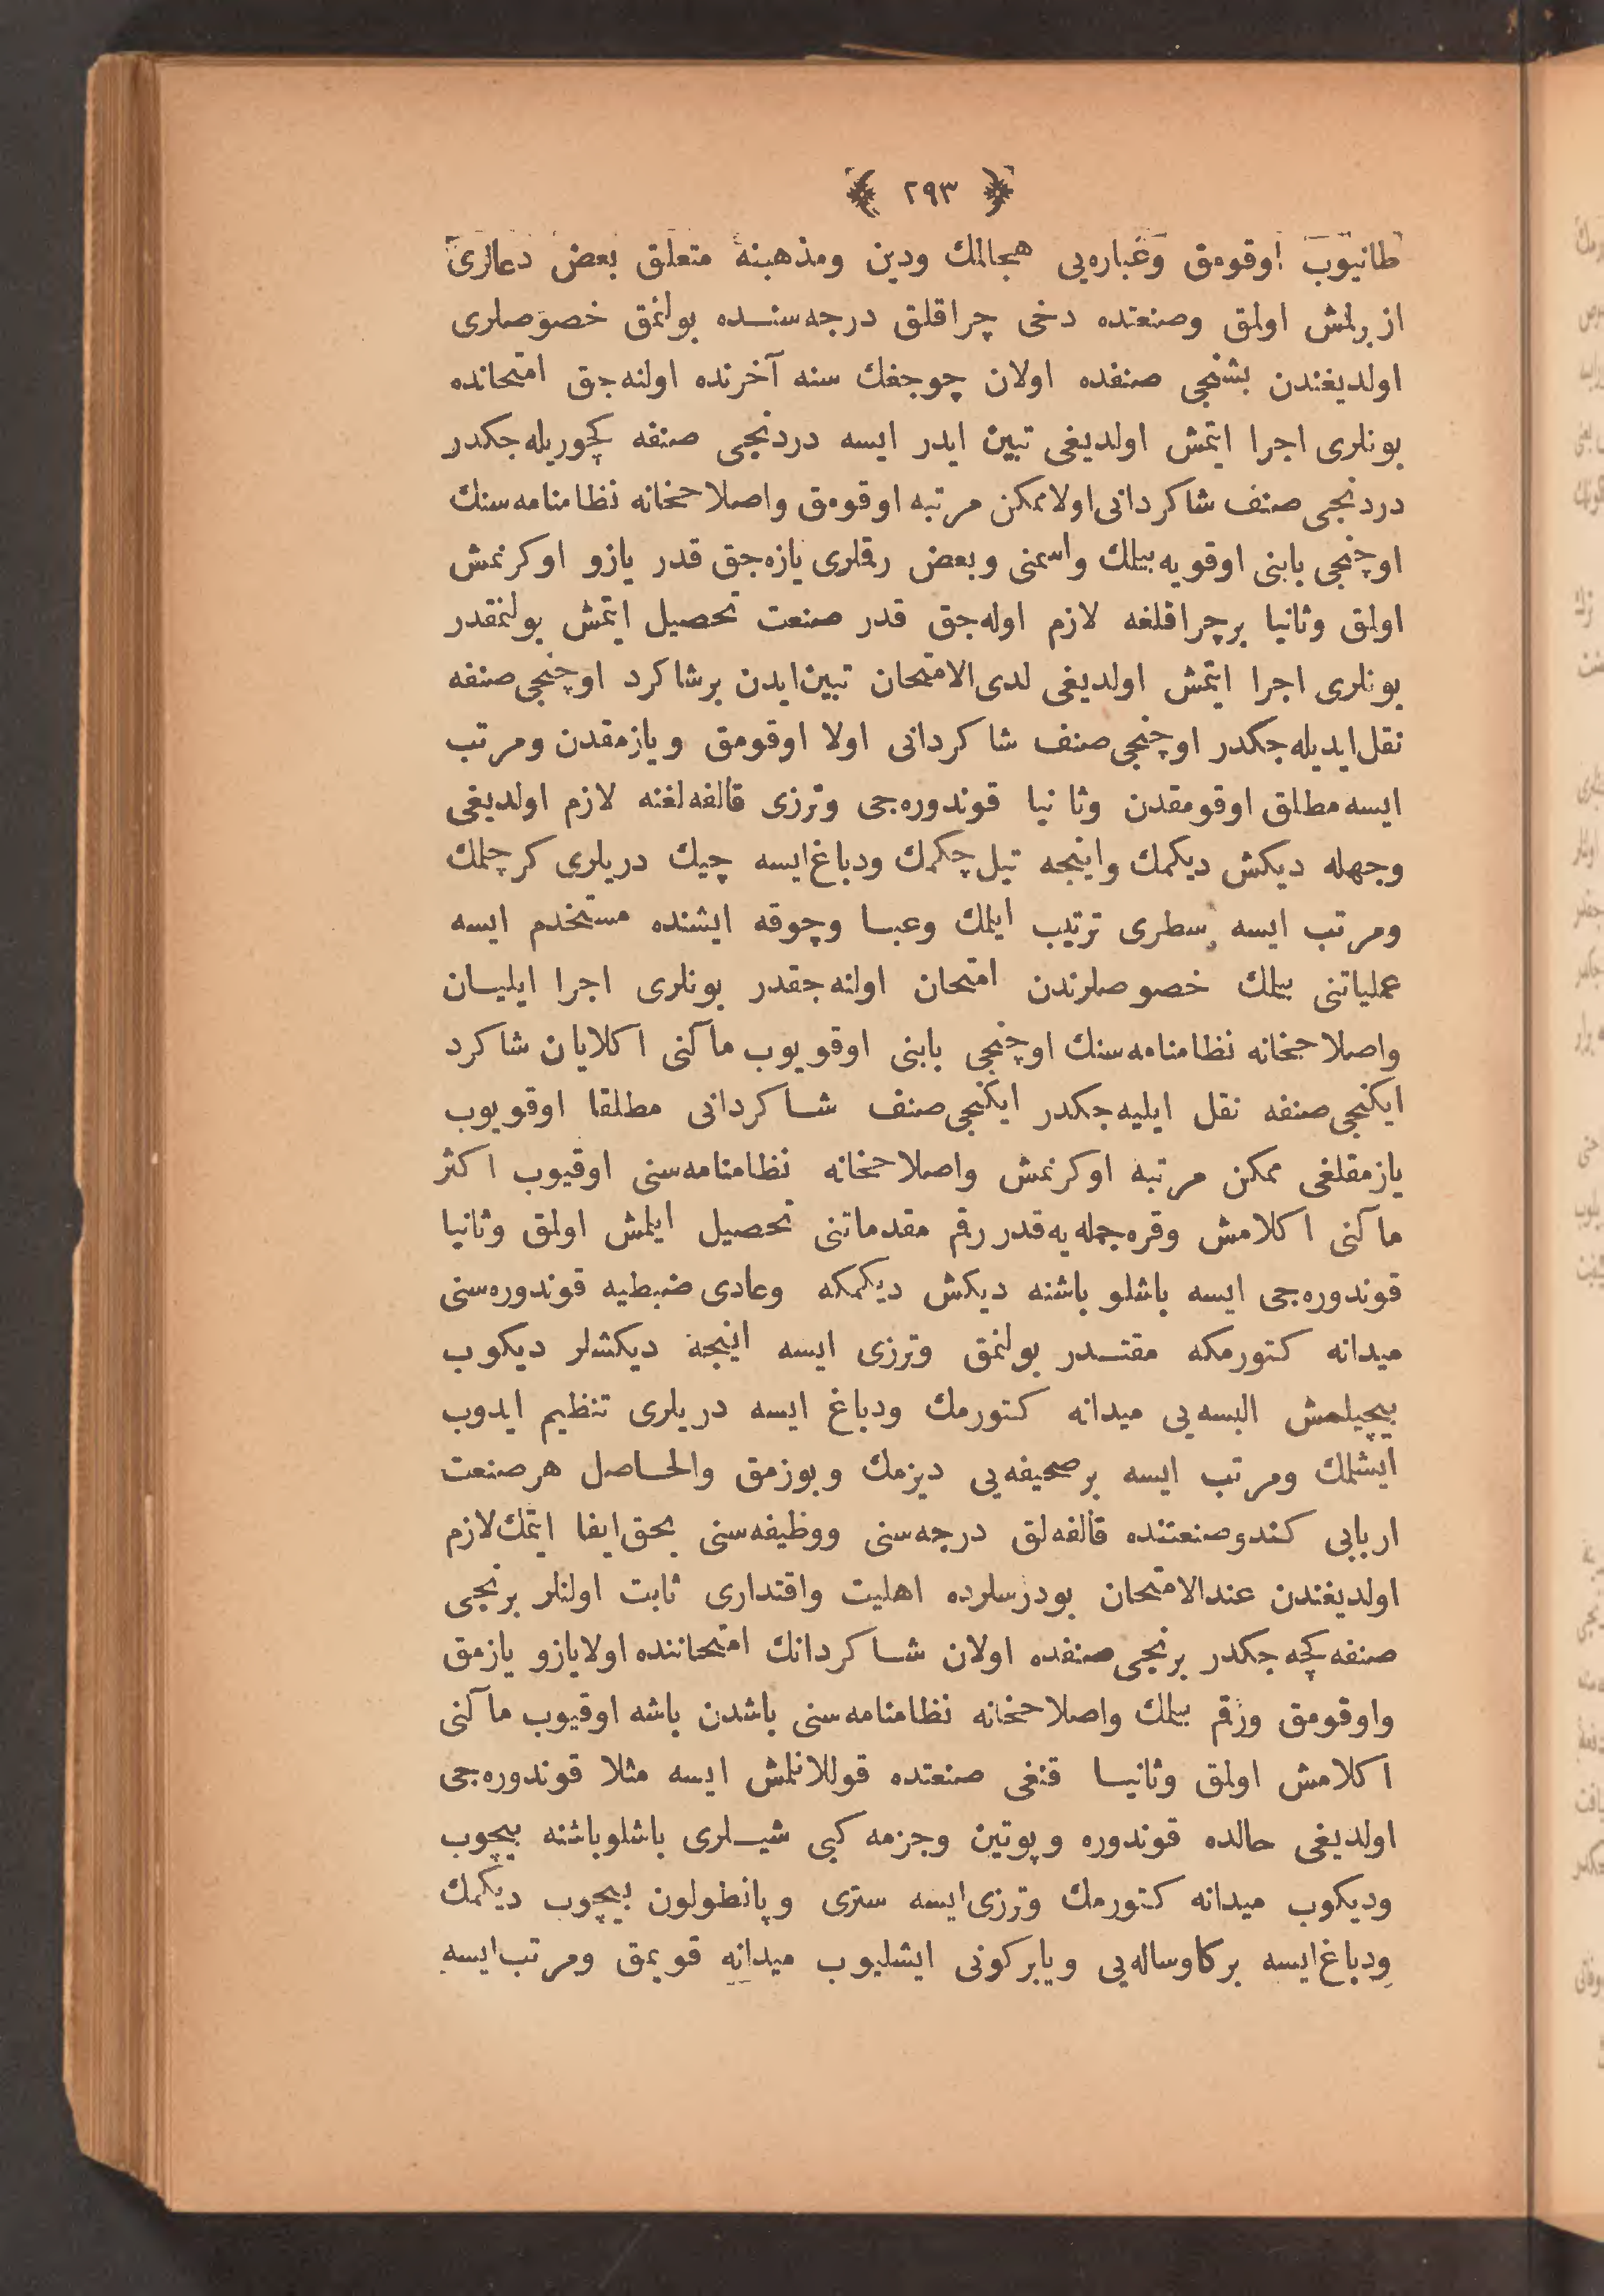 ﴿ ٢٩٣ ﴾
طانیوب اوقومق وعباره‌یی هجالمك ودین ومذهبنه متعلق بعض دعالری
ازبرلمش اولمق وصنعتده دخی چراقلق درجه‌سنده بولنمق خصوصلری
اولدیغندن بشنجی صنفده اولان چوجغك سنه آخرنده اولنه‌جق امتحانده
بونلری اجرا ایتمش اولدیغی تبین ایدر ایسه دردنجی صنفه کچوریله‌جکدر
دردنجی صنف شاکردانی اولا ممکن مرتبه اوقومق واصلاحخانه نظامنامه‌سنك
اوچنجی بابنی اوقویه‌بیلمك واسمنی وبعض رقملری یازه‌جق قدر یازو اوکرنمش
اولمق وثانیا برچراقلغه لازم اوله‌جق قدر صنعت تحصیل ایتمش بولنمقدر
بونلری اجرا ایتمش اولدیغی لدی‌الامتحان تبین‌ایدن برشاکرد اوچنجی‌صنفه
نقل‌ایدیله‌جکدر اوچنجی‌صنف شاکردانی اولا اوقومق ویازمقدن ومرتب
ایسه مطلق اوقومقدن وثانیا قوندوره‌جی وترزی قالفه‌لغنه لازم اولدیغی
وجهله دیکش دیکمك واینجه تیل‌چکمك ودباغ‌ایسه چیك دریلری کرچلمك
ومرتب ایسه سطری ترتیب ایلمك وعبا وچوقه ایشنده مستخدم ایسه
عملیاتنی بیلمك خصوصلرندن امتحان اولنه‌جقدر بونلری اجرا ایلیان
واصلاحخانه نظامنامه‌سنك اوچنجی بابنی اوقویوب مآلنی اکلایان شاکرد
ایکنجی‌صنفه نقل ایلیه‌جکدر ایکنجی‌صنف شاکردانی مطلقا اوقویوب
یازمقلغی ممکن مرتبه اوکرنمش واصلاحخانه نظامنامه‌سنی اوقیوب اکثر
مآلنی اکلامش وقره‌جمله‌یه‌قدر رقم مقدماتنی تحصیل ایلمش اولمق وثانیا
قوندوره‌جی ایسه باشلو باشنه دیکش دیکمکه وعادی ضبطیه قوندوره‌سنی
میدانه کتورمکه مقتدر بولنمق وترزی ایسه اینجه دیکشلر دیکوب
بیچیلمش البسه‌یی میدانه کتورمك ودباغ ایسه دریلری تنظیم ایدوب
ایشلمك ومرتب ایسه برصحیفه‌یی دیزمك وبوزمق والحاصل هرصنعت
اربابی کندوصنعتنده قالفه‌لق درجه‌سنی ووظیفه‌سنی بحق‌ایفا ایتمك‌لازم
اولدیغندن عندالامتحان بودرسلرده اهلیت واقتداری ثابت اولنلر برنجی
صنفه کچه‌جکدر برنجی‌صنفده اولان شاکردانك امتحاننده اولایازو یازمق
واوقومق ورقم بیلمك واصلاحخانه نظامنامه‌سنی باشدن باشه اوقیوب مآلنی
اکلامش اولمق وثانیا قنغی صنعتده قوللانلمش ایسه مثلا قوندوره‌جی
اولدیغی حالده قوندوره وپوتین وجزمه کبی شیلری باشلوباشنه بیچوب
ودیکوب میدانه کتورمك وترزی‌ایسه ستری وپانطولون بیچوب دیکمك
ودباغ‌ایسه برکاوساله‌یی ویابرکونی ایشلیوب میدانه قویمق ومرتب‌ایسه